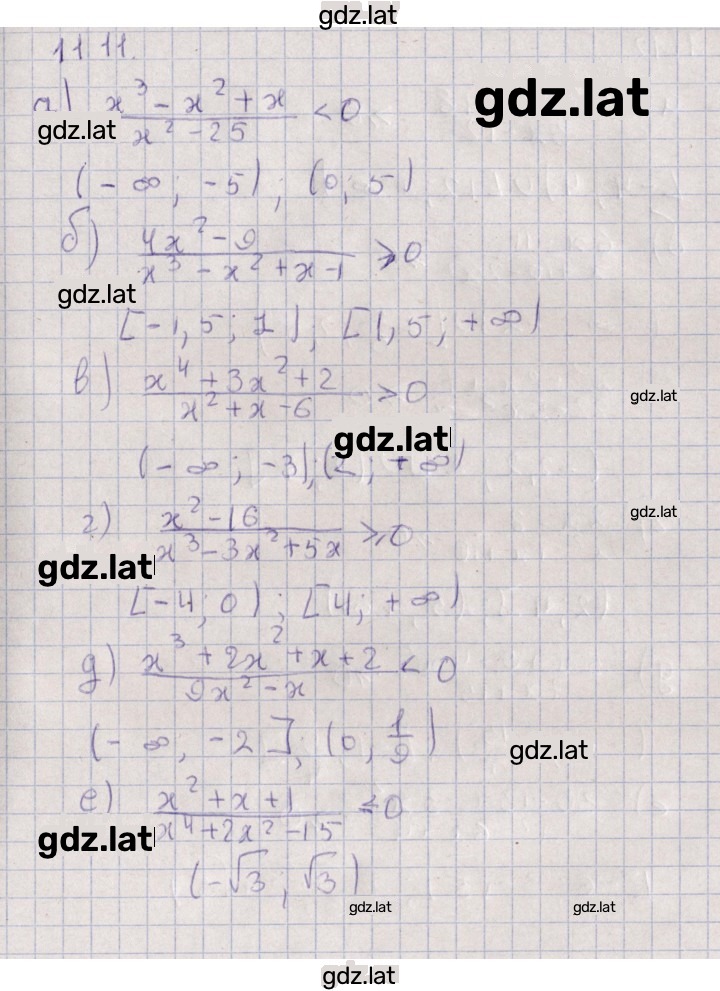 gdz.lat
11.11.
а) (x³ - x² + x)/(x² - 25) < 0
gdz.lat
gdz.lat
(-∞; -5); (0; 5)
б) (4x² - 9)/(x³ - x² + x - 1) ≥ 0
gdz.lat
[-1,5; 1); [1,5; +∞)
в) (x⁴ + 3x² + 2)/(x² + x - 6) > 0
gdz.lat
gdz.lat
(-∞; -3); (2; +∞)
г) (x² - 16)/(x³ - 3x² + 5x) ≥ 0
gdz.lat
gdz.lat
[-4; 0); [4; +∞)
д) (x³ + 2x² + x + 2)/(9x² - x) < 0
(-∞; -2]; (0; 1/9)
gdz.lat
е) (x² + x + 1)/(x⁴ + 2x² - 15) ≤ 0
gdz.lat
(-√3; √3)
gdz.lat
gdz.lat
gdz.lat